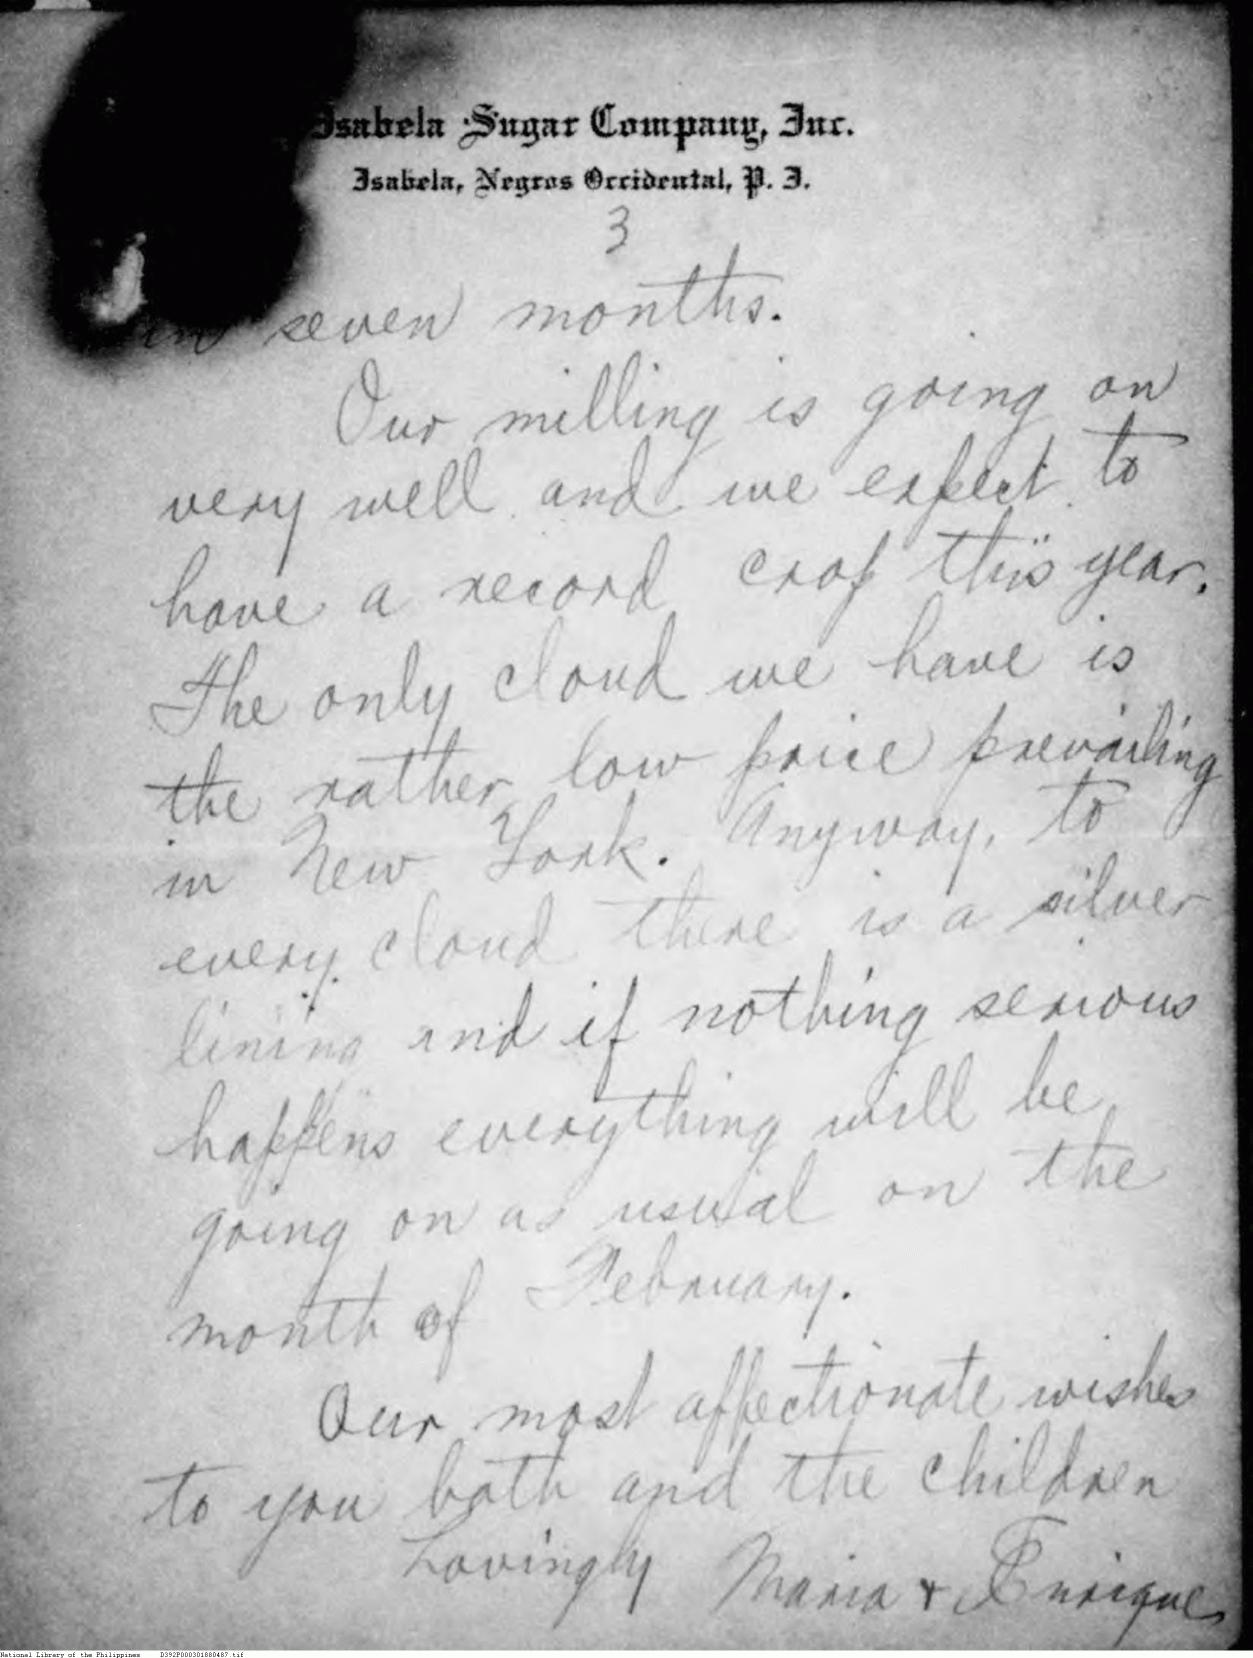 Isabela Sugar Company, Inc.
Isabela, Negros Occidental, P. I.
3
in seven months.
Our milling is going on
very well and we expect to
have a record crop this year.
The only cloud we have is
the rather low price prevailing
in New York. Anyway, to
every cloud there is a silver
lining and if nothing serious
happens everything will be
going on as usual on the
month of February.
Our most affectionate wishes
to you both and the children
Lovingly Maria & Enrique
National Library of the Philippines D392P000301880487.tif